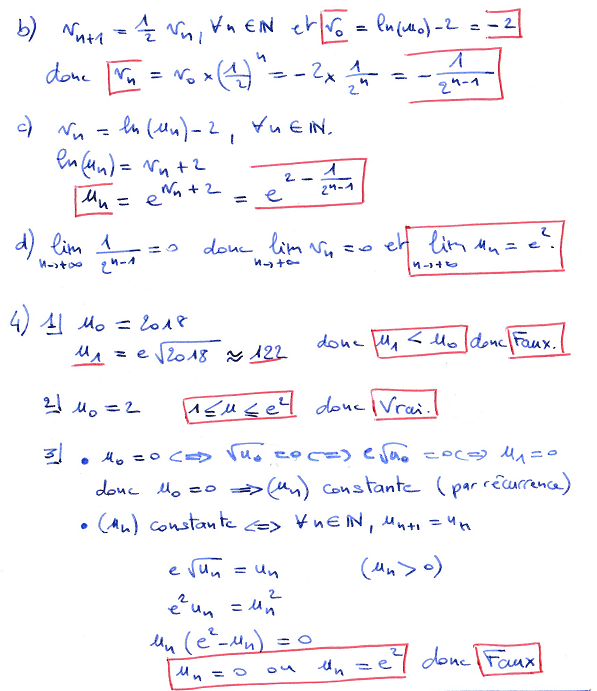 b) v_{n+1} = 1/2 v_n, ∀n ∈ ℕ et v_0 = ln(u_0) - 2 = -2
donc v_n = v_0 × (1/2)^n = -2 × 1/2^n = - 1/2^{n-1}
c) v_n = ln(u_n) - 2, ∀n ∈ ℕ.
ln(u_n) = v_n + 2
u_n = e^{v_n + 2} = e^{2 - 1/2^{n-1}}
d) lim_{n→+∞} 1/2^{n-1} = 0 donc lim_{n→+∞} v_n = 0 et lim_{n→+∞} u_n = e^2.
4) 1) u_0 = 2018
u_1 = e√2018 ≈ 122 donc u_1 < u_0 donc Faux.
2) u_0 = 2 1 ≤ u ≤ e^2 donc Vrai.
3) • u_0 = 0 <=> √u_0 = 0 <=> e√u_0 = 0 <=> u_1 = 0
donc u_0 = 0 => (u_n) constante (par récurrence)
• (u_n) constante <=> ∀n ∈ ℕ, u_{n+1} = u_n
e√u_n = u_n (u_n > 0)
e^2 u_n = u_n^2
u_n (e^2 - u_n) = 0
u_n = 0 ou u_n = e^2 donc Faux